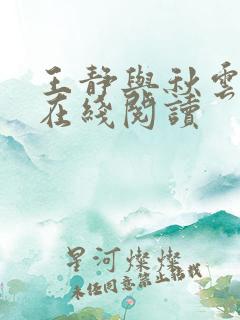 王静與秋雲
在綫閱讀
星河燦燦
未经同意禁止转载